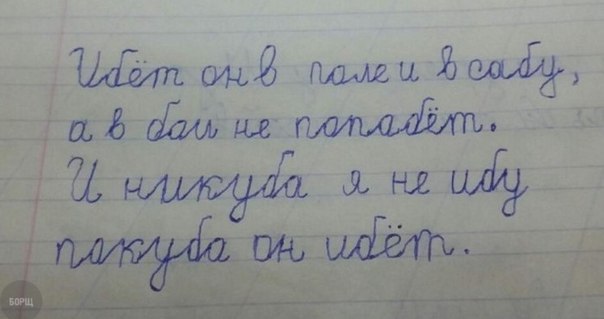 Ибёт он в поле и в сабу,
а в бом не попабёт.
И никуба я не ибу
покуба он ибёт.
БОРЩ